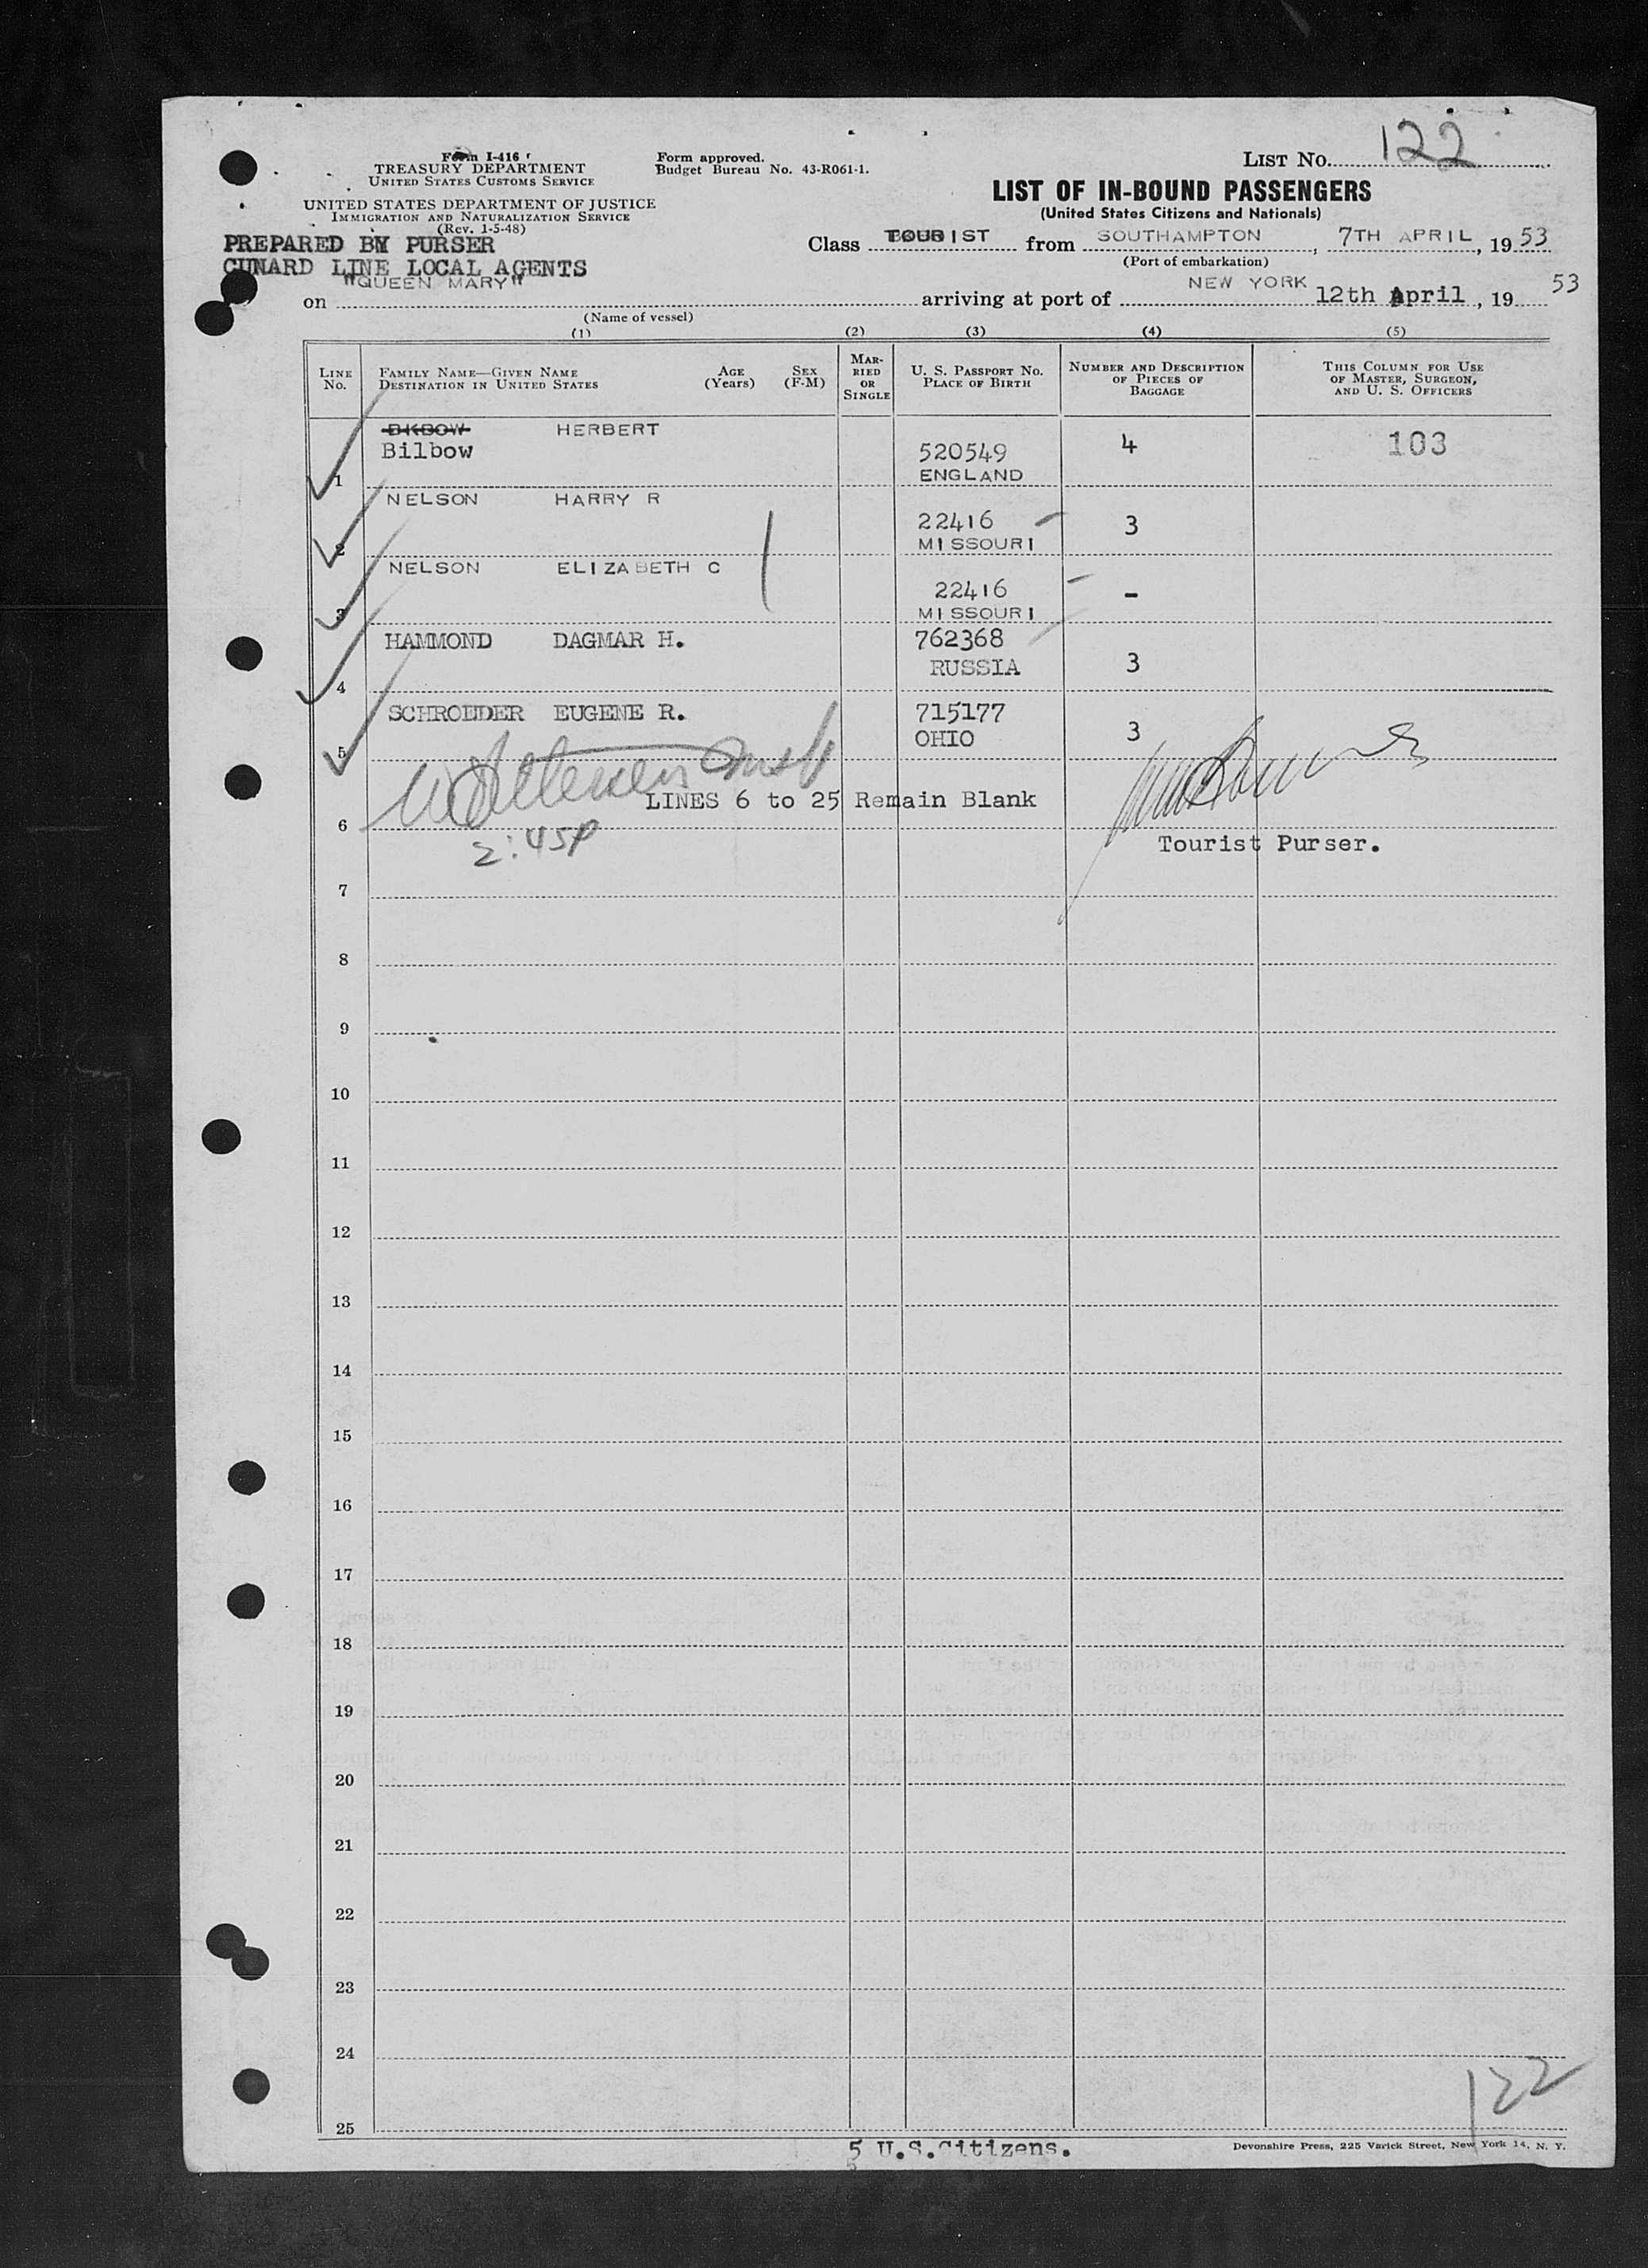 LIST No. 122
Form I-416
TREASURY DEPARTMENT
UNITED STATES CUSTOMS SERVICE
UNITED STATES DEPARTMENT OF JUSTICE
IMMIGRATION AND NATURALIZATION SERVICE
(Rev. 1-5-48)
Form approved.
Budget Bureau No. 43-R061-1.
LIST OF IN-BOUND PASSENGERS
(United States Citizens and Nationals)
PREPARED BY PURSER
CUNARD LINE LOCAL AGENTS
Class TOURIST from SOUTHAMPTON, 7TH APRIL, 1953
(Port of embarkation)
on "QUEEN MARY" arriving at port of NEW YORK 12th April, 19 53
(Name of vessel)
(1) (2) (3) (4) (5)
LINE No.
FAMILY NAME—GIVEN NAME
DESTINATION IN UNITED STATES
AGE (Years)
SEX (F-M)
MARRIED OR SINGLE
U. S. PASSPORT No.
PLACE OF BIRTH
NUMBER AND DESCRIPTION OF PIECES OF BAGGAGE
THIS COLUMN FOR USE OF MASTER, SURGEON, AND U. S. OFFICERS
HERBERT
Bilbow 520549 4 103
1 ENGLAND
NELSON HARRY R
22416 3
2 MISSOURI
NELSON ELIZABETH C
22416 -
3 MISSOURI
HAMMOND DAGMAR H. 762368
RUSSIA 3
4
SCHROEDER EUGENE R. 715177
5 OHIO 3
LINES 6 to 25 Remain Blank
6
2:45P
Tourist Purser.
7
8
9
10
11
12
13
14
15
16
17
18
19
20
21
22
23
24
122
25
5 U.S.Citizens.
Devonshire Press, 225 Varick Street, New York 14, N. Y.